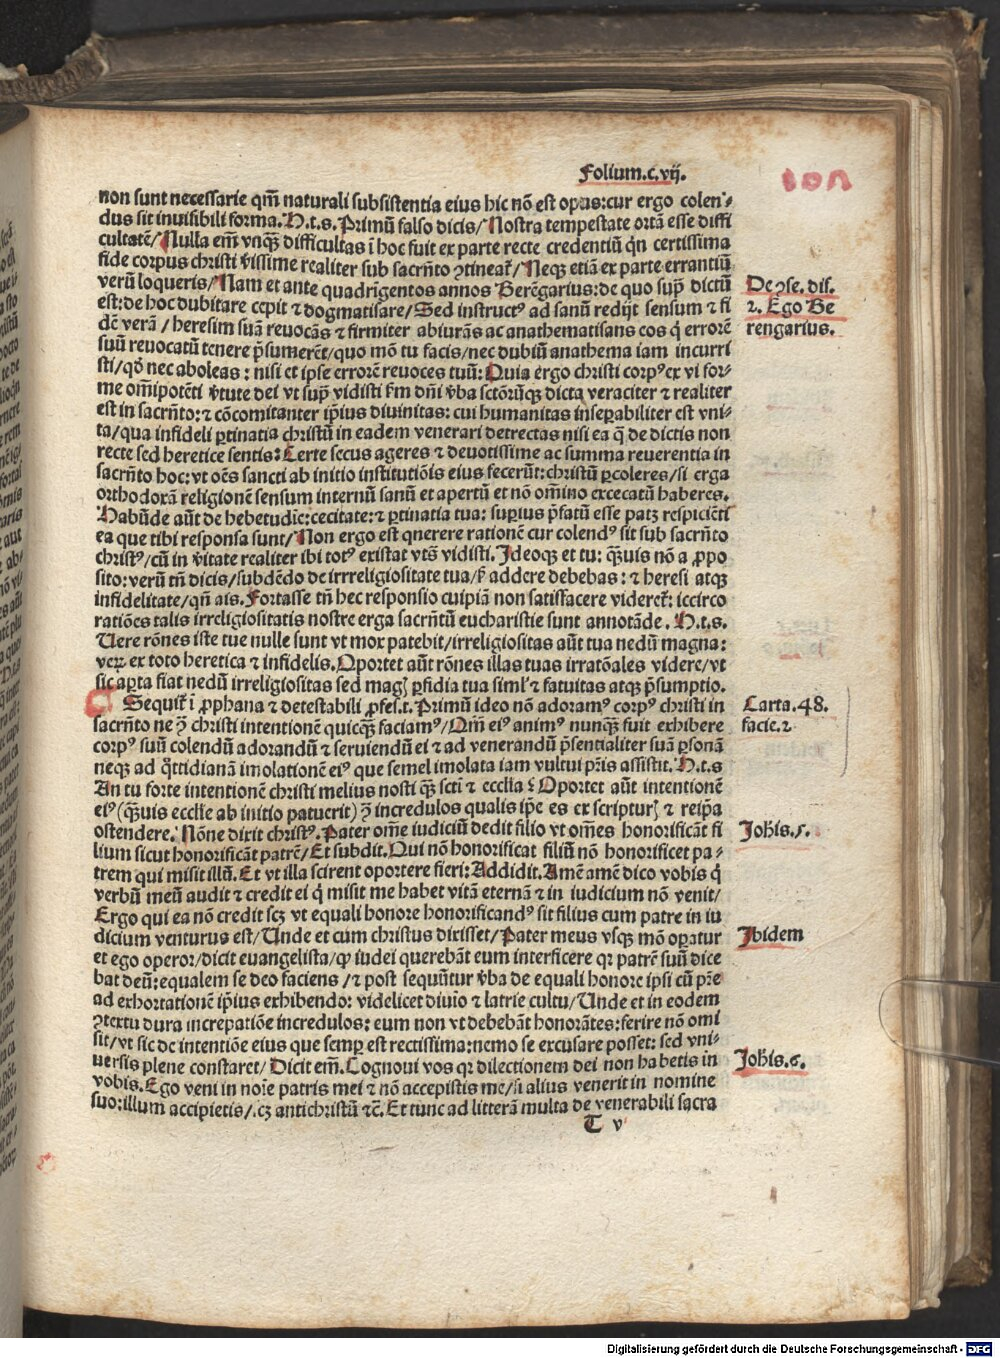 Folium.c.vij.
non sunt necessarie qm̃ naturali subsistentia eius hic nõ est opus:cur ergo colen-
dus sit inuisibili forma.N.t.s.Primũ falso dicis/Nostra tempestate ortã esse diffi
cultatẽ/Nulla em̃ vnꝙ̃ difficultas ĩ hoc fuit ex parte recte credentiũ q̃n certissima
fide corpus christi v̾issime realiter sub sacrñto ꝯtineat̃/Neqꝫ etiã ex parte errantiũ
verũ loqueris/Nam et ante quadrĩgentos annos Berẽgarius:de quo sup̃ dictũ
est:de hoc dubitare cepit ⁊ dogmatisare/Sed instructꝰ ad sanũ redijt sensum ⁊ fi
dẽ verã/heresim suã reuocãs ⁊ firmiter abiurãs ac anathematisans cos q̇ errorẽ
suũ reuocatũ tenere p̃sumerẽt/quo mõ tu facis/nec dubiũ anathema iam incurri
sti/qđ nec aboleas:nisi et ipse errorẽ reuoces tuũ:Quia ergo christi corpꝰ ex vi for-
me om̃ipotẽti v̾tute dei vt sup̃ vidisti fm̃ dñi v̾ba sctõrũqꝫ dicta veraciter ⁊ realiter
est in sacrñto:⁊ cõcomitanter ip̃ius diuinitas:cui humanitas insepabiliter est vni-
ta/qua infideli ꝑtinatia christũ in eadem venerari detrectas nisi ea q̃ de dictis non
recte sed heretice sentis:Certe secus ageres ⁊ deuotissime ac summa reuerentia in
sacrñto hoc:vt oẽs sancti ab initio institutiõis eius fecerũt:christũ ꝑcoleres/si erga
orthodoxã religionẽ sensum internũ sanũ et apertũ et nõ om̃ino excecatũ haberes.
Habũde aũt de hebetudĩe:cecitate:⁊ ꝑtinatia tua:supius p̃fatũ esse patꝫ respiciẽti
ea que tibi responsa sunt/Non ergo est querere rationẽ cur colendꝰ sit sub sacrñto
christꝰ/cũ in v̾itate realiter ibi totꝰ existat vts̃ vidisti.Ideoqꝫ et tu:q̃uis nõ a ꝓpo
sito:verũ tñ dicis/subdẽdo de irreligiositate tua/ addere debebas:⁊ heresi atqꝫ
infidelitate/qñ ais.Fortasse tñ hec responsio cuipiã non satisfacere videret̃:iccirco
ratiões talis irreligiositatis nostre erga sacrñtũ eucharistie sunt annotãde.N.t.s.
Uere rõnes iste tue nulle sunt vt mox patebit/irreligiositas aũt tua nedũ magna:
veꝝ ex toto heretica ⁊ infidelis.Oportet aũt rõnes illas tuas irratõales videre/vt
sic aꝑta fiat nedũ irreligiositas sed magꝭ ꝑfidia tua siml̃ ⁊ fatuitas atqꝫ p̃sumptio.
Sequit̃ ĩ ꝓphana ⁊ detestabili ꝓfes.t.Primũ ideo nõ adoramꝰ corpꝰ christi in
sacrñto ne ꝯ̃ christi intentionẽ quicꝙ̃ faciamꝰ/Qm̃ eiꝰ animꝰ nunꝙ̃ fuit exhibere
corpꝰ suũ colendũ adorandũ ⁊ seruiendũ ei ⁊ ad venerandũ p̃sentialiter suã ꝑsonã
neqꝫ ad q̊ttidianã imolationẽ eiꝰ que semel imolata iam vultui pr̃is assistit.N.t.s
An tu forte intentionẽ christi melius nosti ꝙ̃ scti ⁊ eccl̃ia? Oportet aũt intentionẽ
eiꝰ(q̃uis eccl̃ie ab initio patuerit)ꝯ̃ incredulos qualis ip̃e es ex scripturꝭ ⁊ reip̃a
ostendere.Nõne dixit christꝰ.Pater om̃e iudiciũ dedit filio vt om̃es honorificãt fi
lium sicut honorificãt patrẽ/Et subdit.Qui nõ honorificat filiũ nõ honorificet pa-
trem qui misit illũ.Et vt illa scirent oportere fieri:Addidit.Amẽ amẽ dico vobis q̇
verbũ meũ audit ⁊ credit ei q̇ misit me habet vitã eternã ⁊ in iudicium nõ venit/
Ergo qui ea nõ credit scꝫ vt equali honore honorificandꝰ sit filius cum patre in iu
dicium venturus est/Unde et cum christus dixisset/Pater meus vsqꝫ mõ oꝑatur
et ego operor/dicit euangelista/ꝙ iudei querebãt eum interficere qꝛ patrẽ suũ dice
bat deũ:equalem se deo faciens/⁊ post sequũtur v̾ba de equali honore ipsi cũ pr̃e
ad exhortationẽ ip̃ius exhibendo:videlicet diuĩo ⁊ latrie cultu/Unde et in eodem
ꝯtextu dura increpatiõe incredulos:eum non vt debebãt honorãtes:ferire nõ omi
sit/vt sic de intentiõe eius que semꝑ est rectissima:nemo se excusare posset:sed vni-
uersis plene constaret/Dicit em̃.Cognoui vos qꝛ dilectionem dei non habetis in
vobis.Ego veni in noĩe patris mei ⁊ nõ accepistis me/si alius venerit in nomine
suo:illum accipietis/.scꝫ antichristũ ⁊c̃.Et tunc ad litterã multa de venerabili sacra
T v
De ꝯse. dis.
2. Ego Be
rengarius.
Carta.48.
facie.2
Joh̃is.5.
Ibidem
Joh̃is.6.
Digitalisierung gefördert durch die Deutsche Forschungsgemeinschaft - DFG